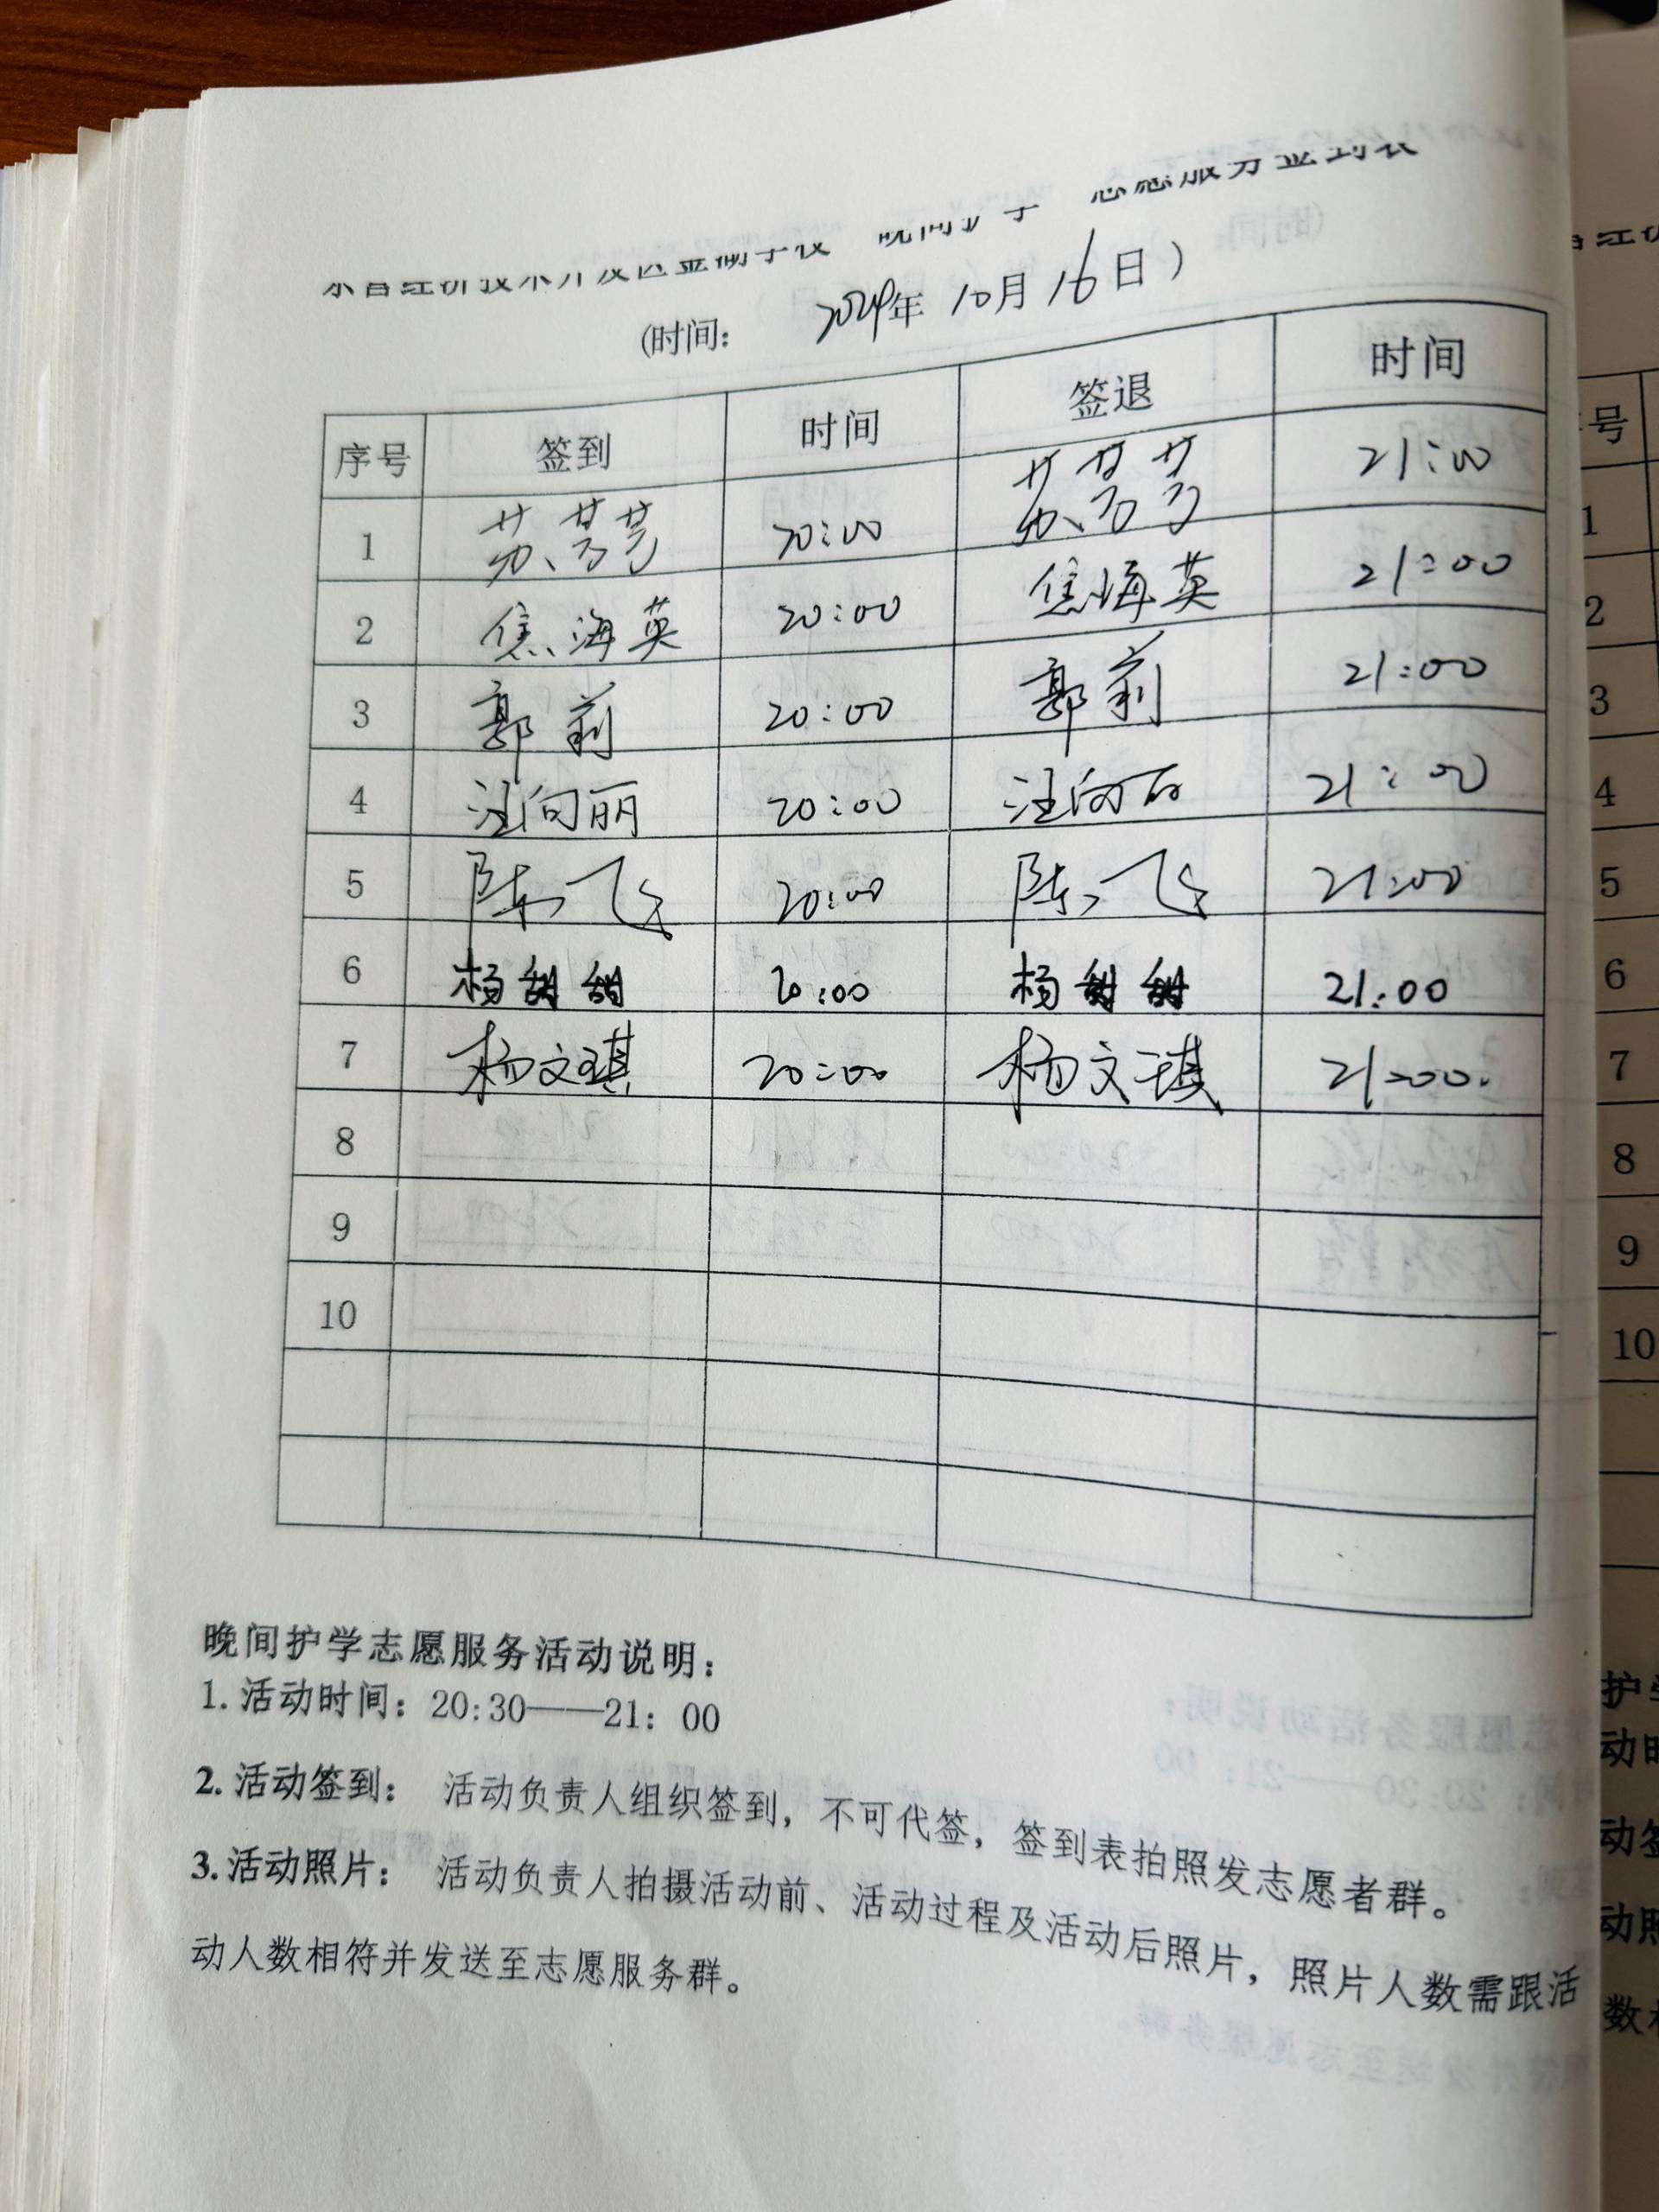 晚间护学 志愿服务签到表
(时间: 2024年 10月 16日)
序号 签到 时间 签退 时间
1 苏芳芳 20:00 苏芳芳 21:00
2 焦海英 20:00 焦海英 21:00
3 郭莉 20:00 郭莉 21:00
4 汪向丽 20:00 汪向丽 21:00
5 陈飞 20:00 陈飞 21:00
6 杨甜甜 20:00 杨甜甜 21:00
7 杨文琪 20:00 杨文琪 21:00
8
9
10
晚间护学志愿服务活动说明:
1. 活动时间: 20:30——21: 00
2. 活动签到: 活动负责人组织签到, 不可代签, 签到表拍照发志愿者群。
3. 活动照片: 活动负责人拍摄活动前、活动过程及活动后照片, 照片人数需跟活
动人数相符并发送至志愿服务群。
号
1
2
3
4
5
6
7
8
9
10